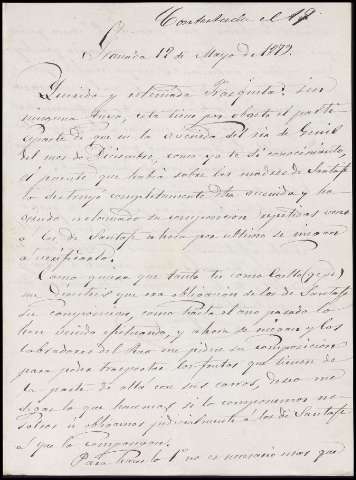 Contestada el 19.
Granada 12 de Mayo de 1879.
Querida y estimada Frasquita: sin
ninguna tuya, esta tiene por objeto el parti-
ciparte de que en la avenida del rio de Genil
del mes de Diciembre, como ya te di conocimiento,
el puente que habia sobre las madres de Santafe
lo destruyó completamente dha avenida y ha-
reclamado su composicion repetidas veces
á los de Santafe ahora por ultimo se niegan
a verificarlo.
Como quiera que tanto tu como
me dijisteis que era obligacion de los de Santafe
su composicion, como hasta el año pasado lo
han venido efectuando, y ahora se niegan y los
labradores del me piden su composicion
para poder trasportar los frutos que tienen de
la parte de alla con sus carros, deseo me
digas lo que hacemos si lo componemos no-
sotros ú obligamos judicialmente á los de Santafe
á que lo compongan.
Para hacer lo 1º no es necesario mas que